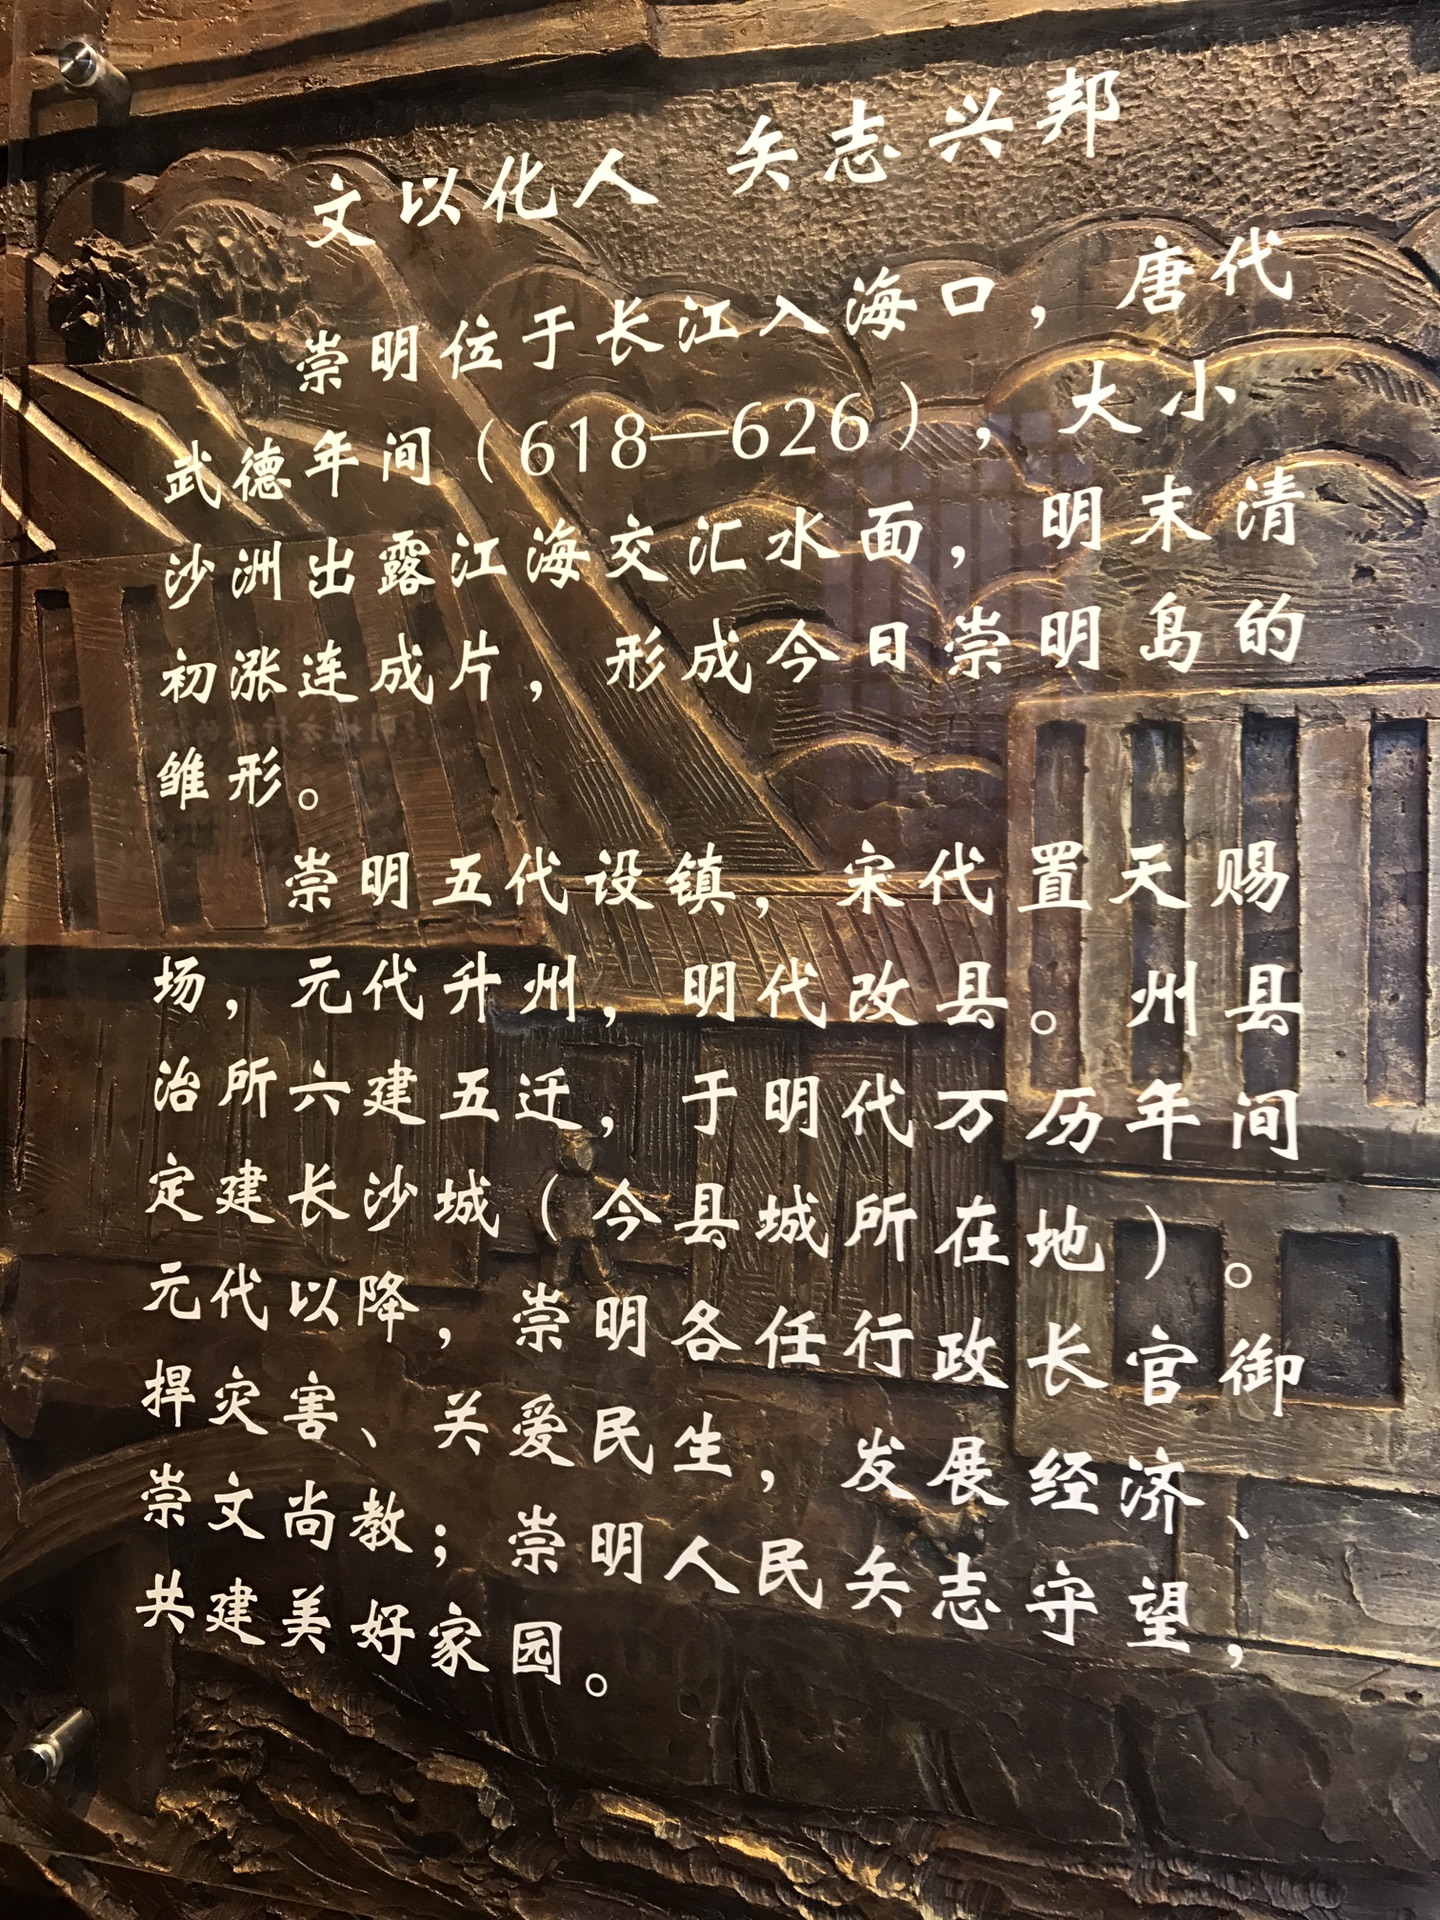 文以化人 矢志兴邦
崇明位于长江入海口，唐代
武德年间（618—626），大小
沙洲出露江海交汇水面，明末清
初涨连成片，形成今日崇明岛的
雏形。
崇明五代设镇，宋代置天赐
场，元代升州，明代改县。州县
治所六建五迁，于明代万历年间
定建长沙城（今县城所在地）。
元代以降，崇明各任行政长官御
捍灾害、关爱民生，发展经济、
崇文尚教；崇明人民矢志守望，
共建美好家园。